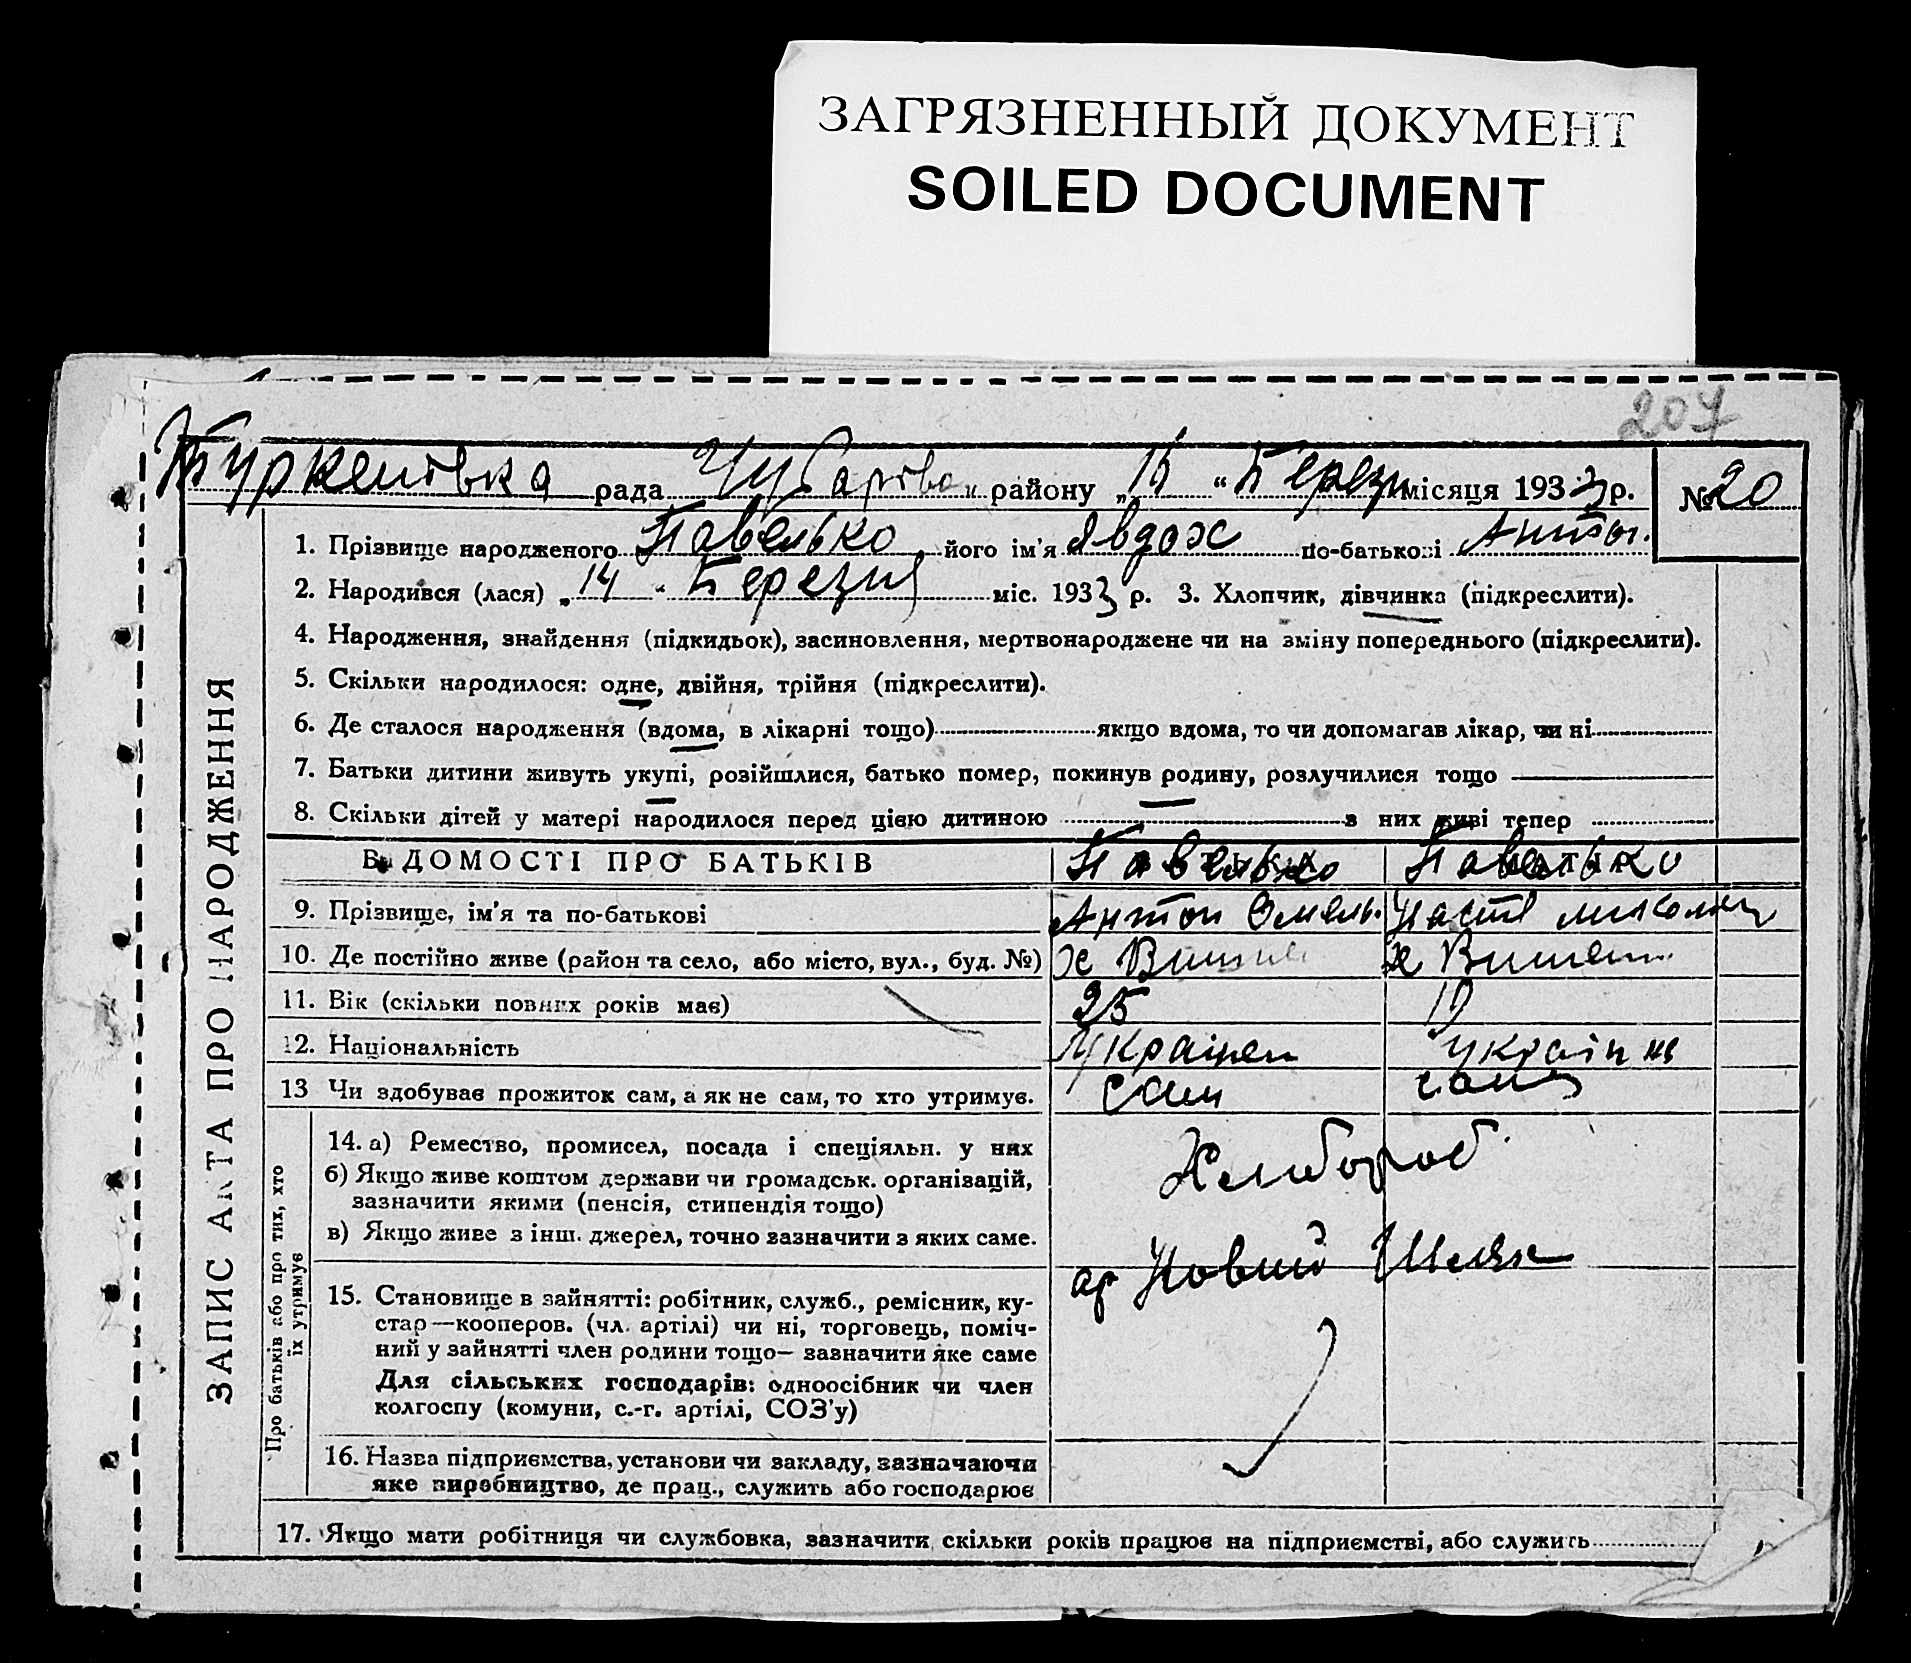 ЗАГРЯЗНЕННЫЙ ДОКУМЕНТ
SOILED DOCUMENT
207
Туркенівка рада Чубарівс. району „15“ Березня місяця 1933 р. № 20
ЗАПИС АКТА ПРО НАРОДЖЕННЯ
1. Прізвище народженого Павелько його ім'я Явдох по-батькові Антон.
2. Народився (лася) „14“ Березня міс. 1933 р. 3. Хлопчик, дівчинка (підкреслити).
4. Народження, знайдення (підкидьок), засиновлення, мертвонароджене чи на зміну попереднього (підкреслити).
5. Скільки народилося: одне, двійня, трійня (підкреслити).
6. Де сталося народження (вдома, в лікарні тощо) якщо вдома, то чи допомагав лікар, чи ні
7. Батьки дитини живуть укупі, розійшлися, батько помер, покинув родину, розлучилися тощо
8. Скільки дітей у матері народилося перед цією дитиною з них живі тепер
ВІДОМОСТІ ПРО БАТЬКІВ Павелько Павелько
9. Прізвище, ім'я та по-батькові Антон Омельь. Настя
10. Де постійно живе (район та село, або місто, вул., буд. №) х х
11. Вік (скільки повних років має) 25 19
12. Національність Українец Українка
13 Чи здобуває прожиток сам, а як не сам, то хто утримує. сам сама
Про батьків або про тих, хто
їх утримує
14. а) Ремество, промисел, посада і спеціяльн. у них Хлибороб
б) Якщо живе коштом держави чи громадськ. організацій,
зазначити якими (пенсія, стипендія тощо)
в) Якщо живе з інш. джерел, точно зазначити з яких саме.
ар Новий Шлях
15. Становище в зайнятті: робітник, служб., ремісник, ку-
стар—кооперов. (чл. артілі) чи ні, торговець, поміч-
ний у зайнятті член родини тощо— зазначити яке саме
Для сільських господарів: одноосібник чи член
колгоспу (комуни, с.-г. артілі, СОЗ'у)
16. Назва підприємства, установи чи закладу, зазначаючи
яке виробництво, де прац., служить або господарює
17. Якщо мати робітниця чи службовка, зазначити скільки років працює на підприємстві, або служить